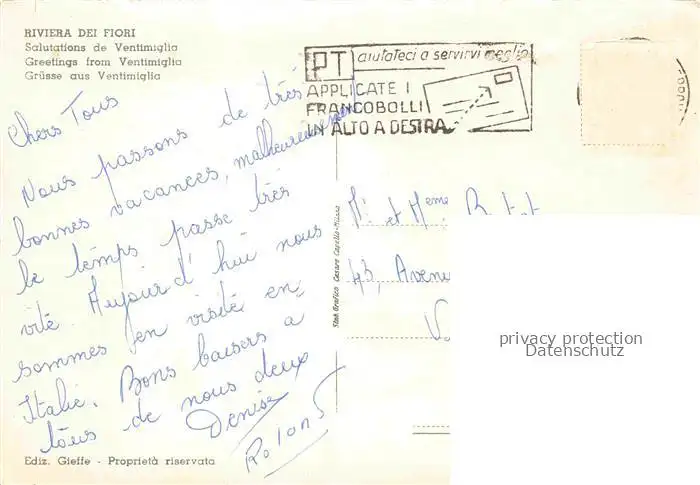 RIVIERA DEI FIORI
Salutations de Ventimiglia
Greetings from Ventimiglia
Grüsse aus Ventimiglia
PT aiutateci a servirvi meglio
APPLICATE I
FRANCOBOLLI
IN ALTO A DESTRA
Chers Tous
Nous passons de très
bonnes vacances, malheureusement
le temps passe très
vite. Aujourd'hui nous
sommes en visite en
Italie. Bons baisers à
tous de nous deux
Denise
Roland
Mr et Meme
43, Avenu
V
Stab. Grafico Cesare Capello - Milano
privacy protection
Datenschutz
Ediz. Gieffe - Proprietà riservata